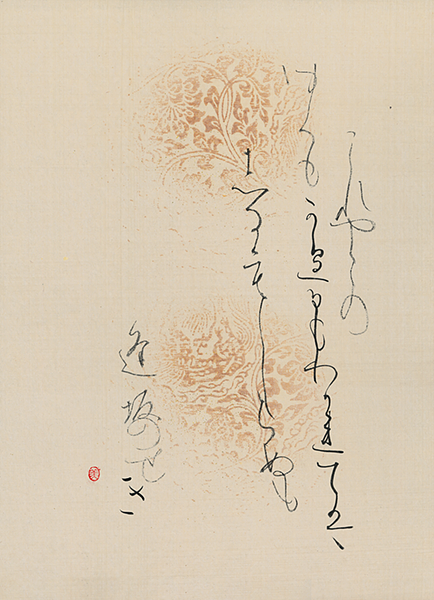 これやこの
ゆくもかへるもわかれては
しるもしらぬも
逢坂のせき